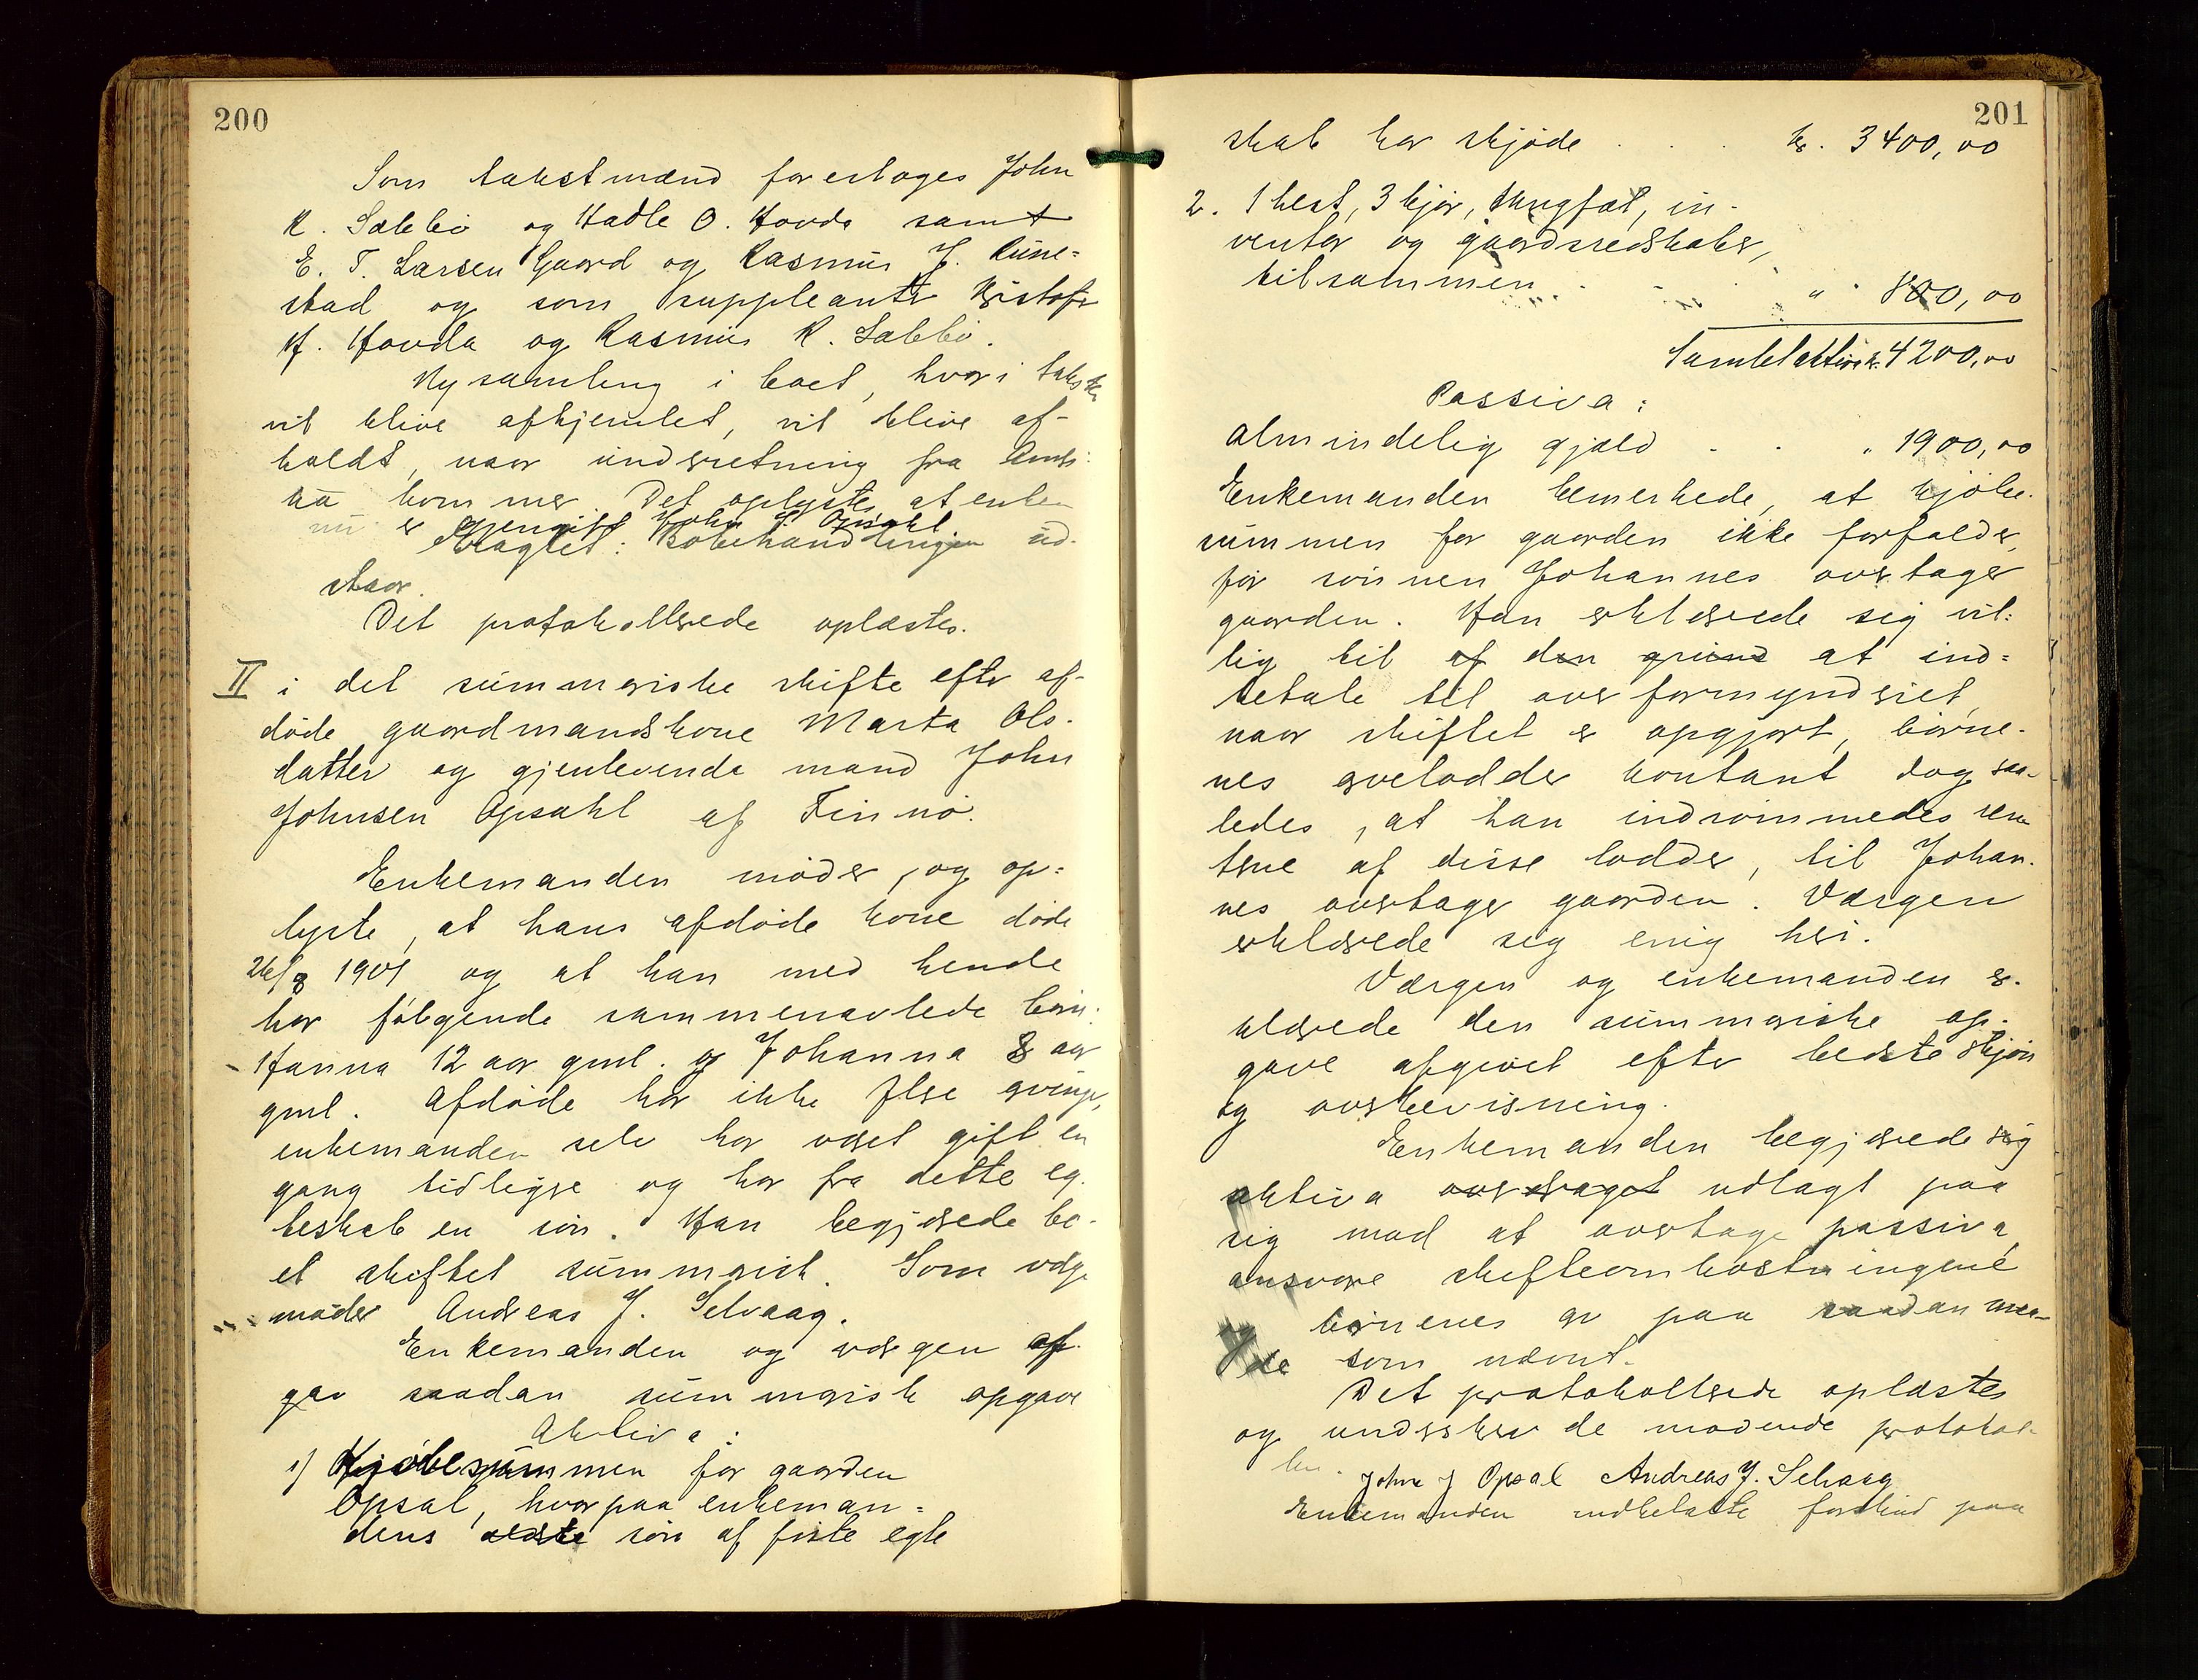 200
Som takstmænd forestages John
K. Sæbbø og Hadle O. Hovda samt
E. T. Larsen Gaard og Rasmus J. Rune=
stad og som suppleanter Kristofer
H. Hovda og Rasmus R. Sæbbø.
Ny samling i boet, hvori taksten
vil blive afhjemlet, vil blive af-
holdt, naar underretning fra Ameri
ka kommer. Det oplystes, at enken
nu er gjengift John J. Opsahl.
Eragtet: Bobehandlingen ud-
staar.
Det protokollerede oplæstes.
II i det summariske skifte efter af-
døde gaardmandskone Marta Ols-
datter og gjenlevende mand John
Johnsen Opsahl af Finnø.
Enkemanden møder, og op=
lyste, at hans afdøde kone døde
26/8 1901 og at han med hende
har følgende sammenavlede børn:
Hanna 12 aar gml. og Johanna 8 aar
gml. Afdøde har ikke flere arvinger,
enkemanden selv har været gift en
gang tidligere og har fra dette eg-
teskab en søn. Han begjærede bo-
et skiftet summarisk. Som værge
møder Andreas J. Selvaag.
Enkemanden og værgen af-
gav saadan summarisk opgave
Aktiva:
1) Kjøbesummen for gaarden
Opsal, hvorpaa enkeman=
dens ældste søn af første egte
201
skab har skjøde . . . kr. 3400,00
2. 1 hest, 3 kjør, smaafæ, in-
ventar og gaardsredskaber,
tilsammen . . . " 800,00
Samlet aktiva kr. 4200,00
Passiva:
Almindelig gjæld . . " 1900,00
Enkemanden bemerkede, at kjøbe-
summen for gaarden ikke forfalder,
før sønnen Johannes overtager
gaarden. Han erklærede sig vil=
lig til af den grund at ind=
betale til overformynderiet,
naar skiftet er opgjort, børne-
nes arvelodder kontant dog saa-
ledes, at han indrømmedes ren
terne af disse lodder, til Johan-
nes overtager gaarden. Værgen
erklærede sig enig heri.
Værgen og enkemanden er-
klærede den summariske op-
gave afgivet efter bedste skjøn
og overbevisning.
Enkemanden begjærede sig
aktiva overdraget udlagt paa
sig mod at overtage passiva,
ansvare skifteomkostningerne
og børnenes arv paa saadan maa-
de som nævnt.
Det protokollerede oplæstes
og underskrev de mødende protokol-
len. John J Opsal Andreas J. Selvaag
Enkemanden indbetalte forskud paa